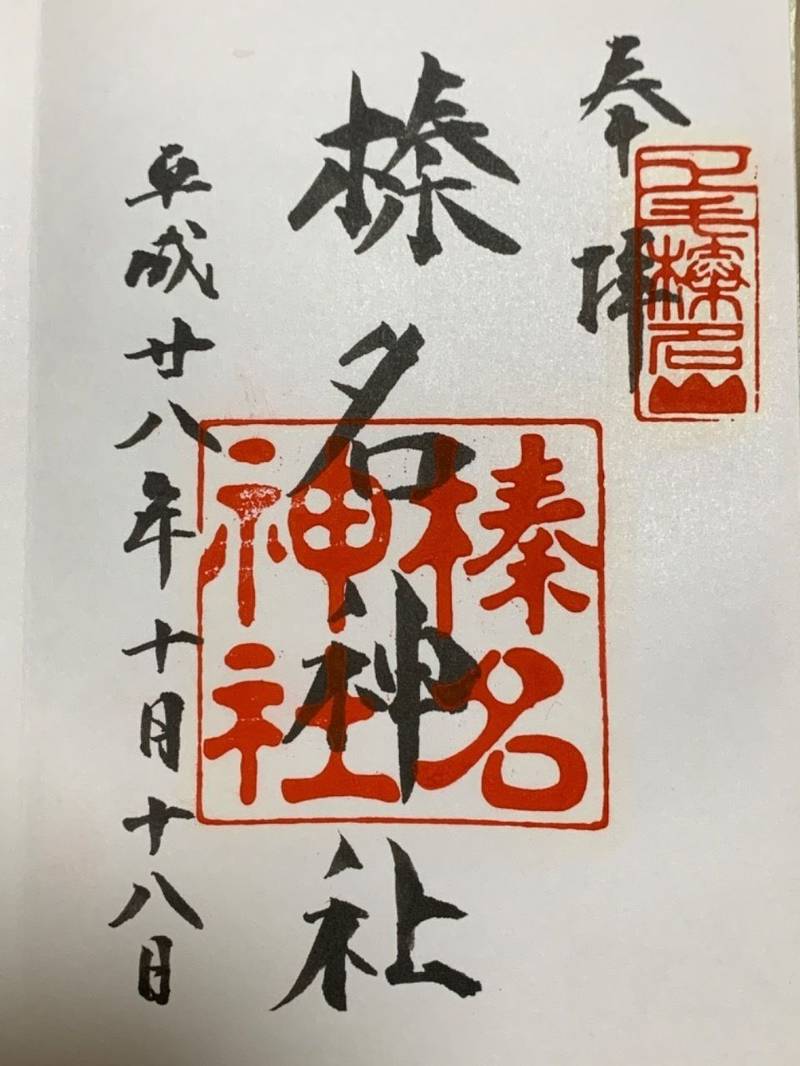 奉拝
上毛榛名山
榛名神社
榛名
神社
平成廿八年十月十八日